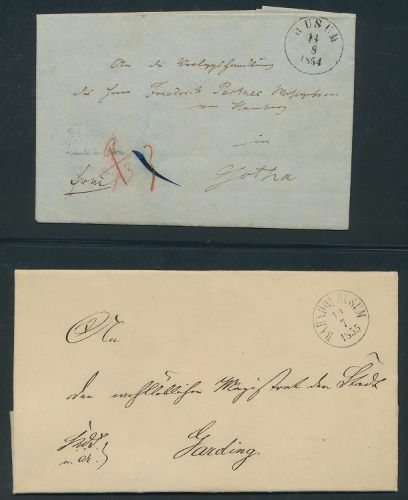 HUSUM
14
8
1854
An die Verlagshandlung
des Herrn Friedrich Perthes
von Hamburg
in
Gotha
frei
BAHNHOF HUSUM
19
7
1855
An
den wohllöblichen Magistrat der Stadt
Garding